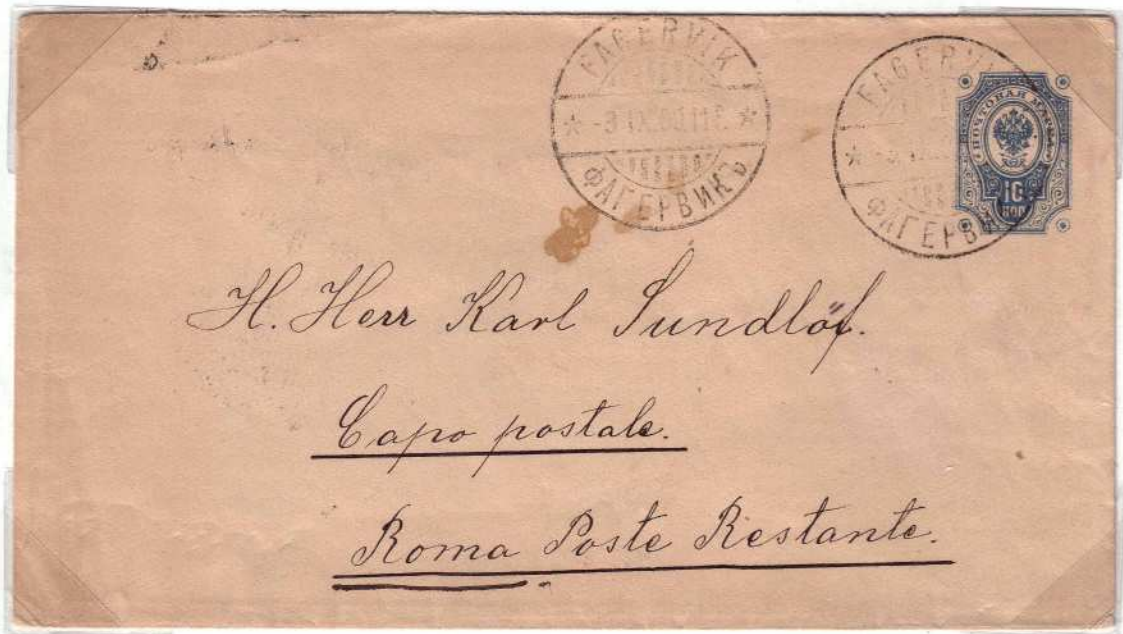 FAGERVIK
-3.IX.00.11 E.
ФАГЕРВИКЪ
FAGERVIK
ФАГЕРВИ
ПОЧТОВАЯ МАРКА
10
КОП
H. Herr Karl Sundlöf.
Capo postale.
Roma Poste Restante.